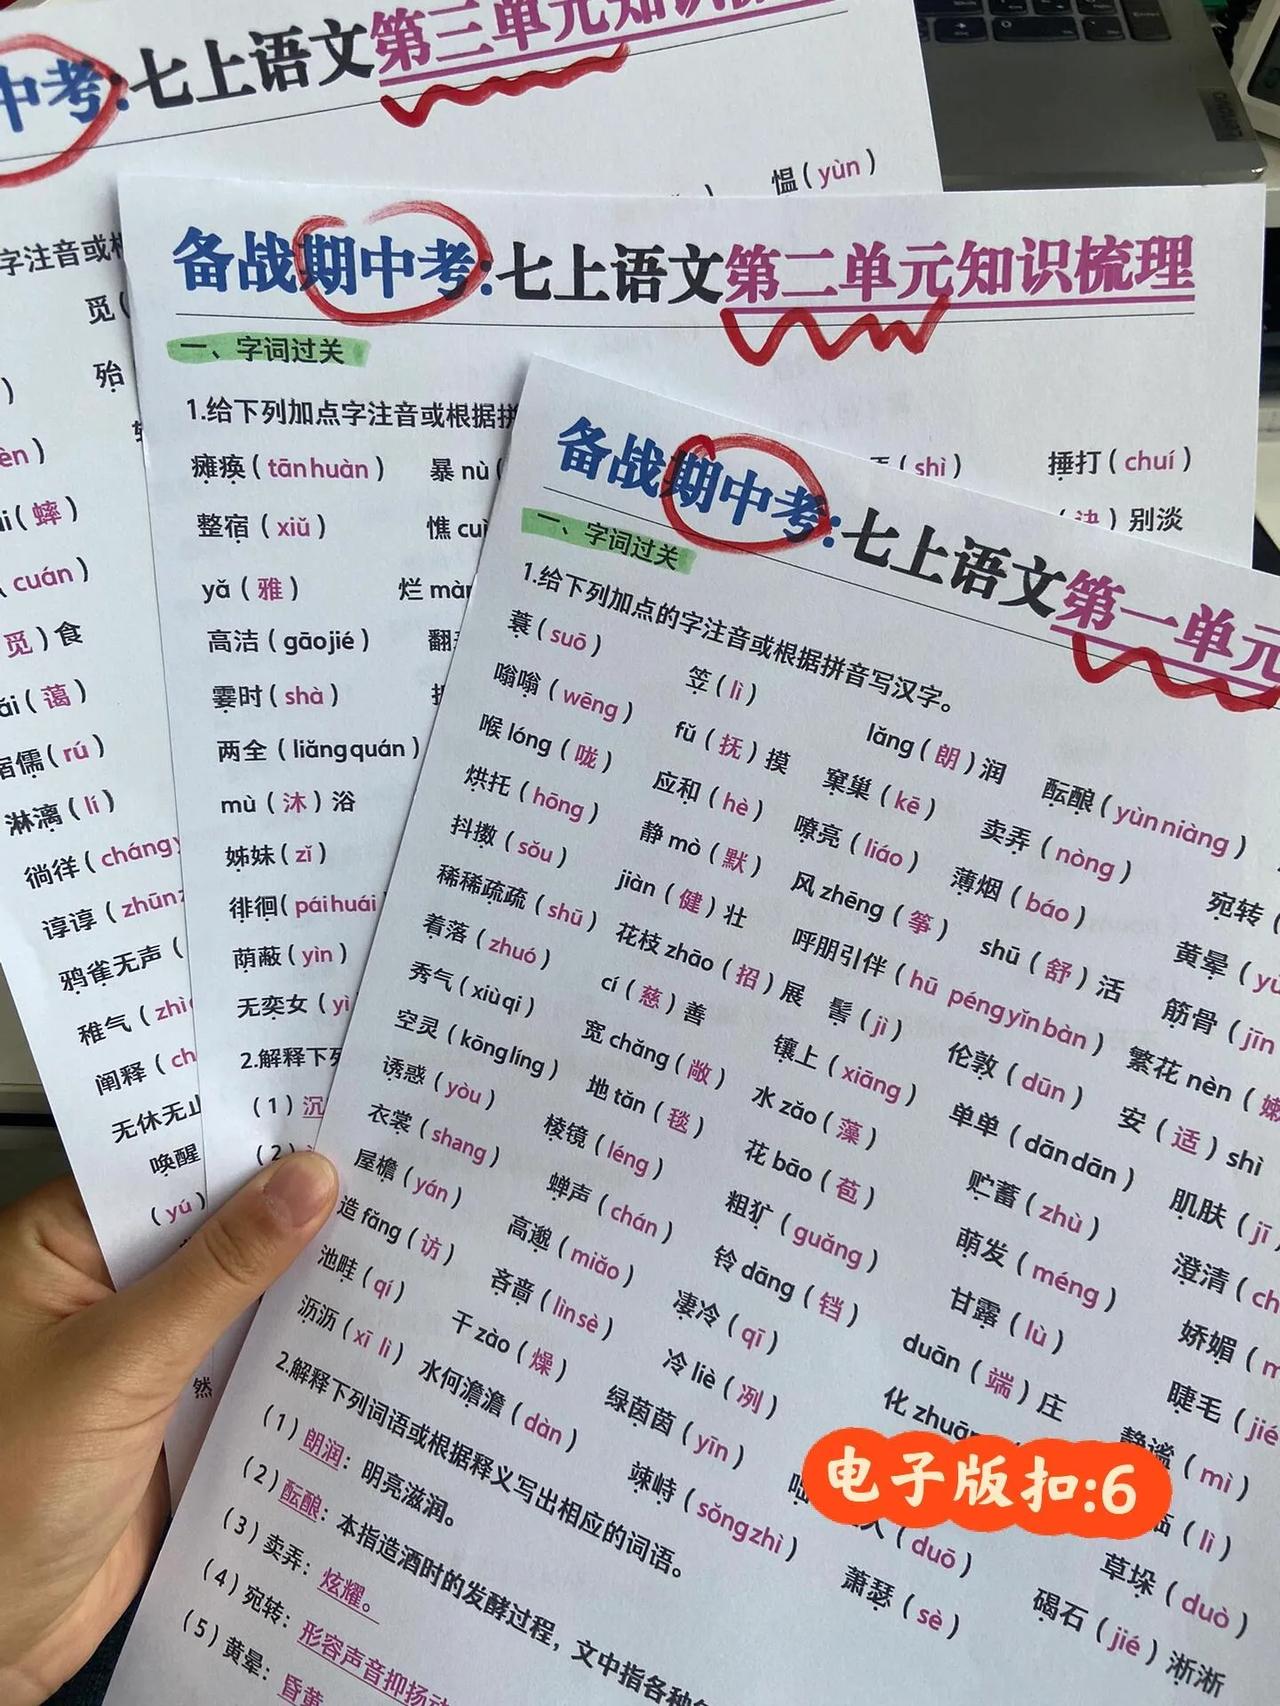 中考:七上语文第三单元知识梳理
愠(yùn)
字注音或根
觅(
殆
èn)
i(蟀)
cuán)
觅)食
ǎi(蔼)
宿儒(rú)
淋漓(lí)
徜徉(cháng y
谆谆(zhūn z
鸦雀无声(
稚气(zhì
阐释(ch
无休无止
唤醒
(yú)
然
备战期中考:七上语文第二单元知识梳理
一、字词过关
1.给下列加点字注音或根据拼
瘫痪(tān huàn) 暴 nù( (shì) 捶打(chuí)
整宿(xiǔ) 憔 cuì (诀)别淡
yǎ(雅) 烂 màn
高洁(gāo jié) 翻
霎时(shà)
两全(liǎng quán)
mù(沐)浴
姊妹(zǐ)
徘徊(pái huái
荫蔽(yìn)
无奕女(yì
2.解释下列
(1)沉
(2)
备战期中考:七上语文第一单元
一、字词过关
1.给下列加点的字注音或根据拼音写汉字。
蓑(suō) 笠(lì) lǎng(朗)润 酝酿(yùn niàng)
嗡嗡(wēng) fǔ(抚)摸 窠巢(kē) 卖弄(nòng) 宛转(
喉 lóng(咙) 应和(hè) 嘹亮(liáo) 薄烟(báo) 黄晕(yù
烘托(hōng) 静 mò(默) 风 zhēng(筝) shū(舒)活 筋骨(jīn
抖擞(sǒu) jiàn(健)壮 呼朋引伴(hū péng yǐn bàn) 繁花 nèn(嫩
稀稀疏疏(shū) 花枝 zhāo(招)展 髻(jì) 伦敦(dūn) 安(适)shì
着落(zhuó) cí(慈)善 镶上(xiāng) 单单(dān dān) 肌肤(jī
秀气(xiù qi) 宽 chǎng(敞) 水 zǎo(藻) 贮蓄(zhù) 澄清(ch
空灵(kōng líng) 地 tǎn(毯) 花 bāo(苞) 萌发(méng) 娇媚(m
诱惑(yòu) 棱镜(léng) 粗犷(guǎng) 甘露(lù) 睫毛(jié
衣裳(shang) 蝉声(chán) 铃 dāng(铛) duān(端)庄 静谧(mì)
屋檐(yán) 高邈(miǎo) 凄冷(qī) 化 zhuān 临(lì)
造 fǎng(访) 吝啬(lìn sè) 冷 liè(冽) 人(duō) 草垛(duò)
池畦(qí) 干 zào(燥) 绿茵茵(yīn) 萧瑟(sè) 碣石(jié)淅淅
沥沥(xī lì) 水何澹澹(dàn) 竦峙(sǒng zhì)
2.解释下列词语或根据释义写出相应的词语。
(1)朗润:明亮滋润。
(2)酝酿:本指造酒时的发酵过程,文中指各种
(3)卖弄:炫耀。
(4)宛转:形容声音抑扬动
(5)黄晕:昏黄
电子版扣:6